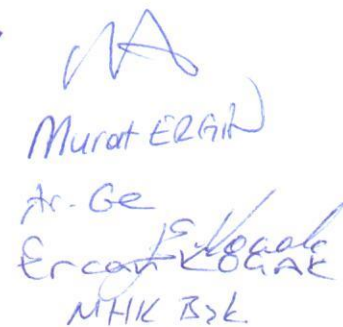 Murat ERGİN
Ar-Ge
Ercan KOÇAK
MHK Bşk.